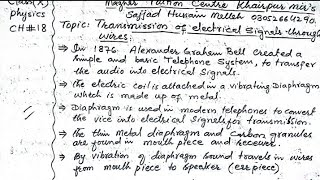 Class(X)
Physics
CH#18
Mazher Tuition Centre Khairpur mir's
Sajjad Husain Mallah 03052661290.
Topic: Transmission of electrical Signals through
wires:
⇒ In 1876. Alexander Graham Bell Created a
simple and basic Telephone System, to transfer
the audio into electrical Signals.
⇒ the electric coil is attached in a vibrating Diaphragm
which is made up of metal.
⇒ Diaphragm is used in modern telephones to convert
the vice into electrical Signals for transmission.
⇒ The thin metal diaphragm and Carbon granules
are found in mouth piece and receiver.
⇒ By vibration of diaphragm Sound travels in wires
from mouth piece to Speaker (ear piece)